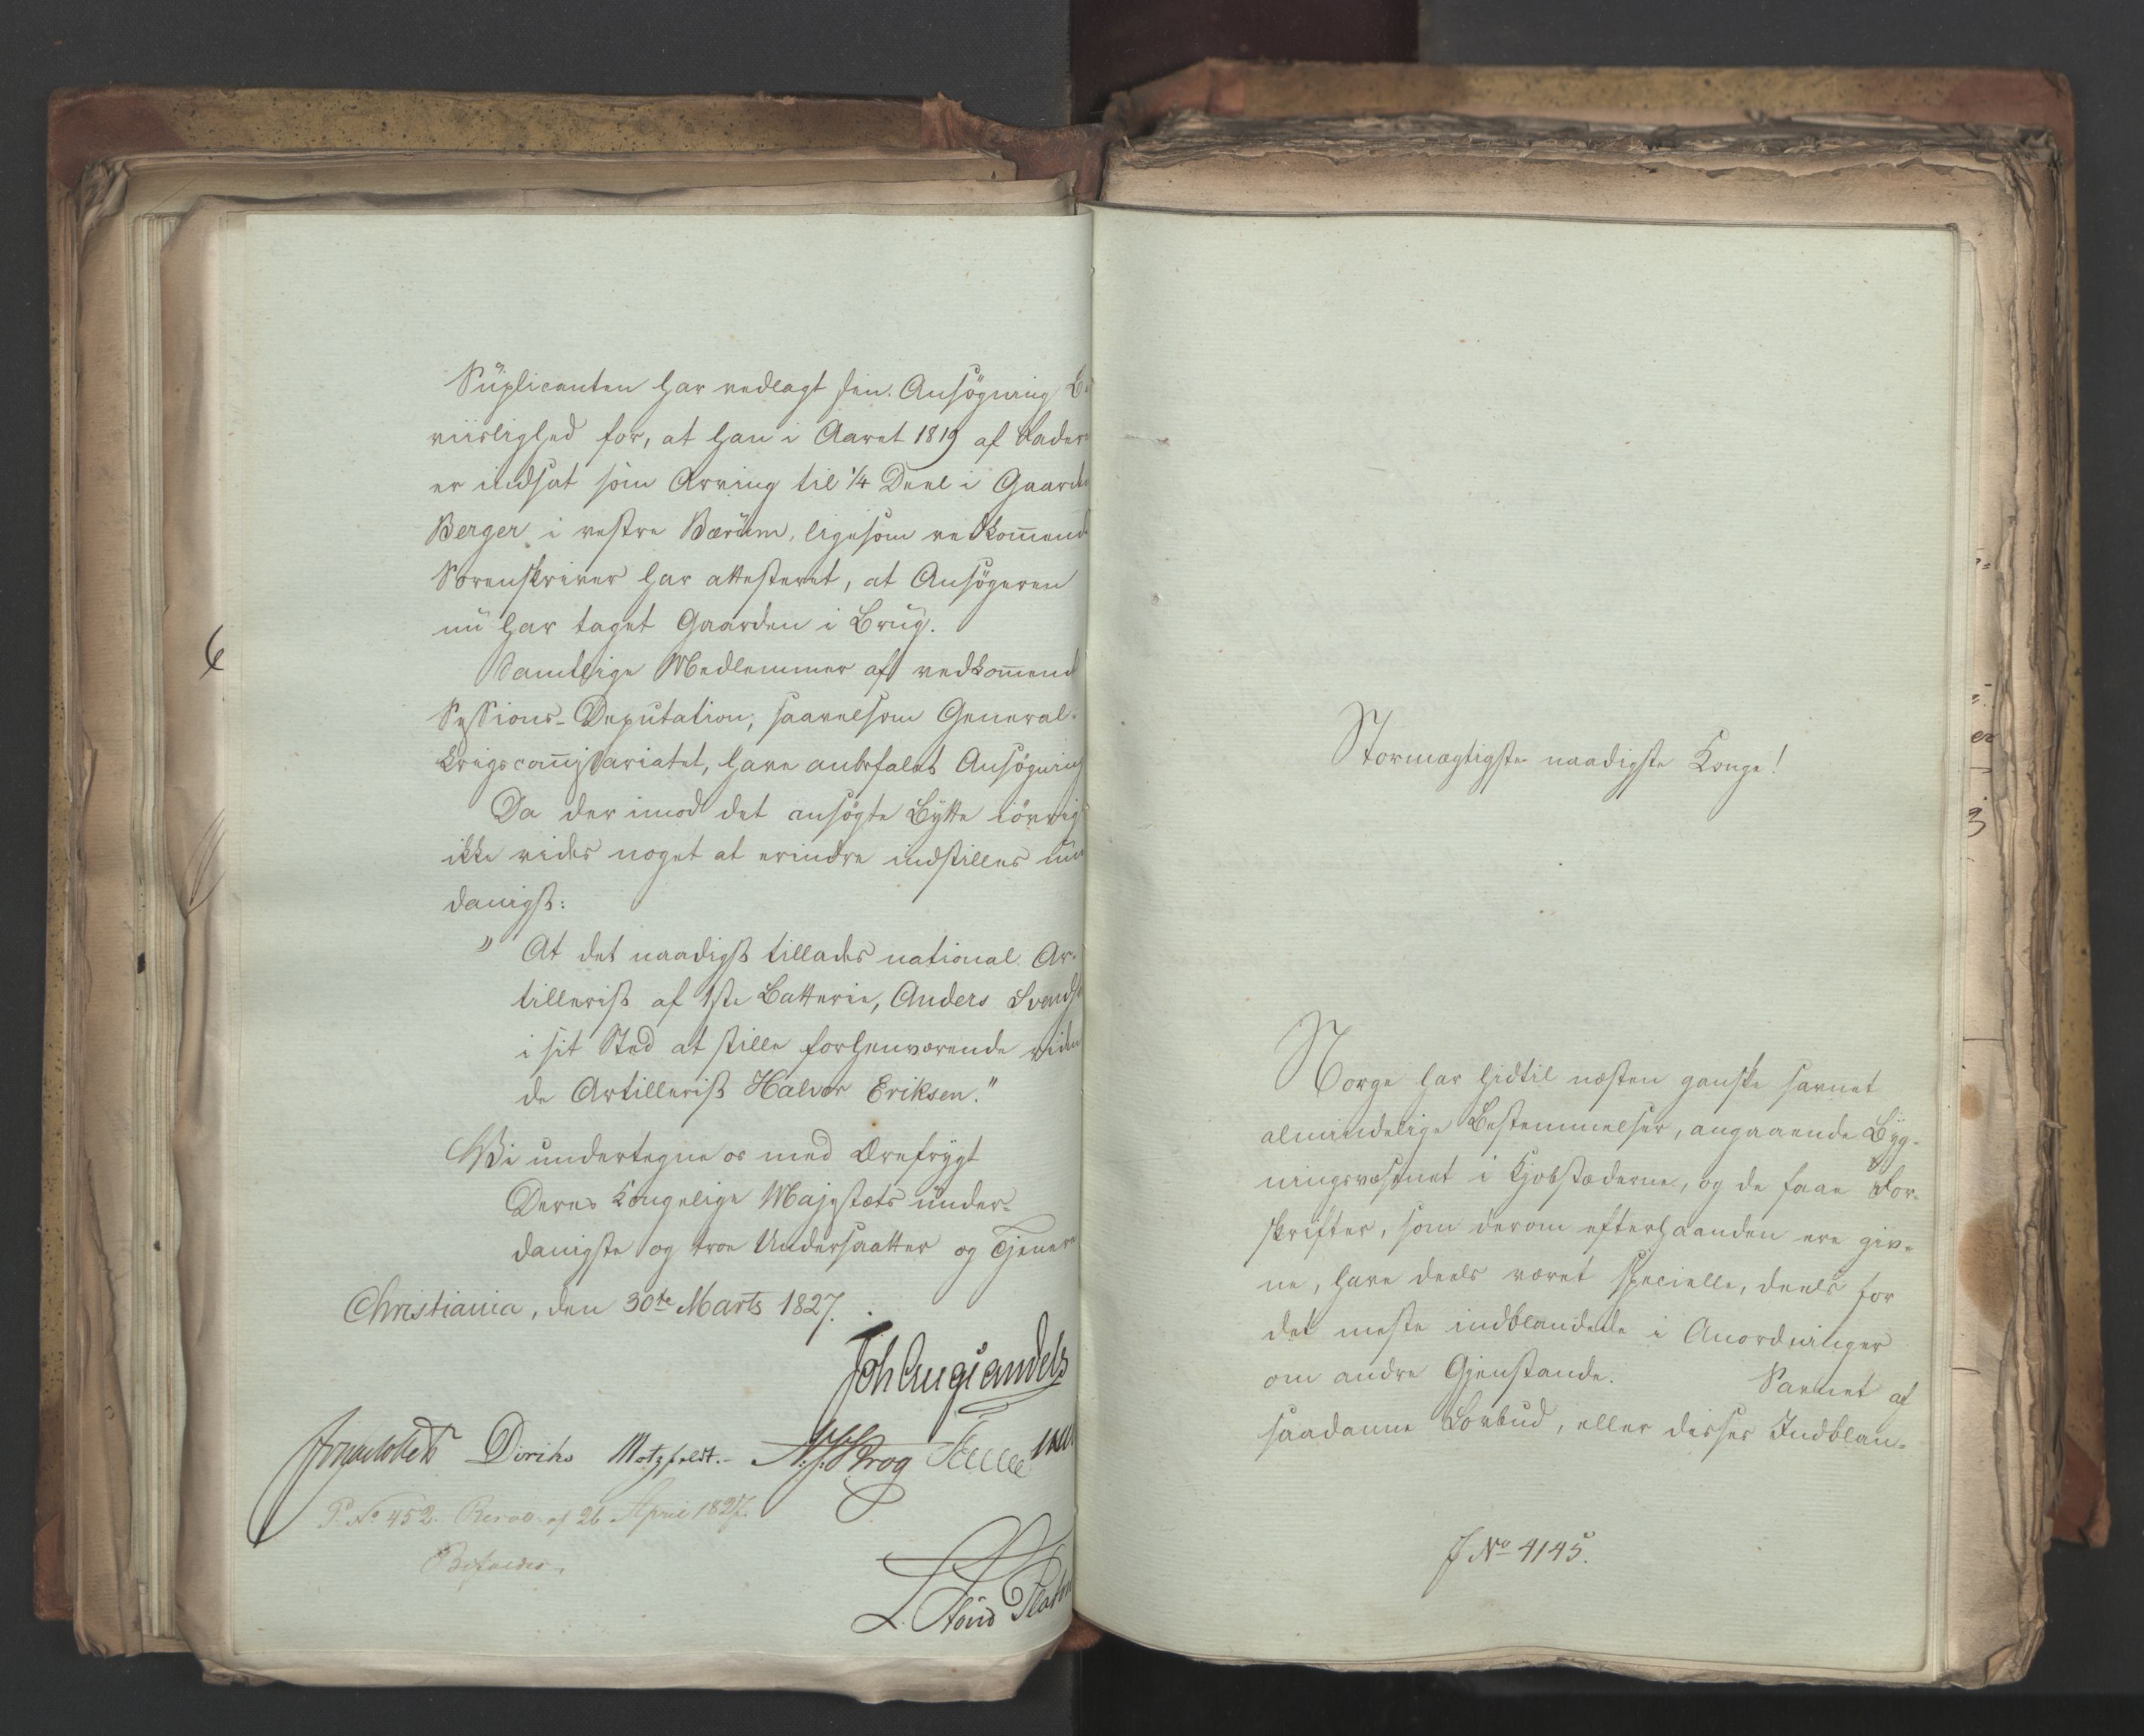 Supplicanten har vedlagt sin Ansögning Be
viislighed for, at han i Aaret 1819 af Fader
er indsat som Arving til 1/4 Deel i Gaarde
Berger i vestre Bærum, ligesom vedkom̅end
Sorenskriver har attesteret, at Ansögeren
nu har taget Gaarden i Brug.
Samtlige Medlemmer af vedkom̅end
Sessions-Deputation, saavelsom General-
krigscom̅issariatet, have anbefalet Ansögning
Da der imod det ansögte Bytte iövrig
ikke vides noget at erindre indstilles un
danigst:
" At det naadigst tillades national Ar-
tillerist af 1ste Batterie, Anders Svends
i sit Sted at stille forhenværende riden
de Artillerist Halvor Eriksen."
Vi undertegne os med Ærefrygt
Deres Kongelige Majestæts under-
danigste og troe Undersaatter og Tjenere
Christiania, den 30te Marts 1827.
Joh Aug Sandels
Diriks Motzfeldt.- Krog
P. No 452. Resol. af 26 April 1827.
Bifaldes.
L. Stoud Platou
6
Stormægtigste naadigste Konge!
Norge har hidtil næsten ganske savnet
almindelige Bestemmelser, angaaende Byg-
ningsvæsenet i Kjøbstæderne, og de faae For-
skrifter, som derom efterhaanden ere giv-
ne, have deels været specielle, deels for
det meste indblandede i Anordninger
om andre Gjenstande. Savnet af
saadanne Lovbud, eller disses Indblan-
J No 4145.